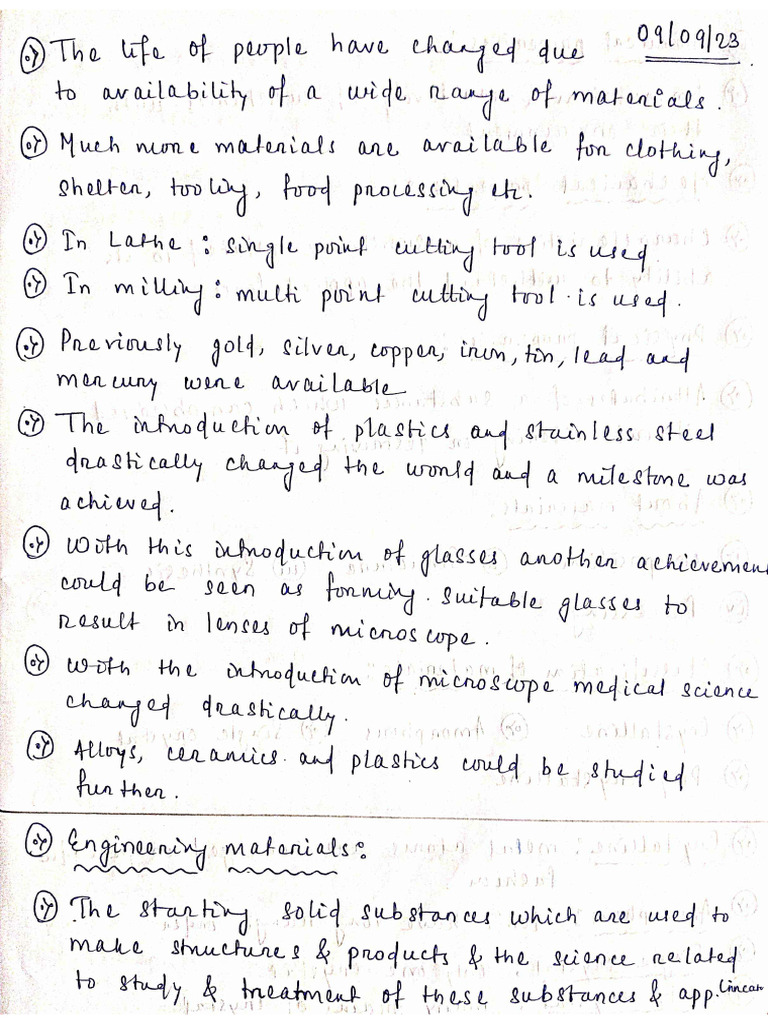 09/09/23
The life of people have changed due
to availability of a wide range of materials.
Much more materials are available for clothing,
shelter, tooling, food processing etc.
In Lathe : single point cutting tool is used
In milling : multi point cutting tool is used.
Previously gold, silver, copper, iron, tin, lead and
mercury were available
The introduction of plastics and stainless steel
drastically changed the world and a milestone was
achieved.
With this introduction of glasses another achievement
could be seen as forming suitable glasses to
result in lenses of microscope.
With the introduction of microscope medical science
changed drastically.
Alloys, ceramics and plastics could be studied
further.
Engineering materials :
The starting solid substances which are used to
make structures & products & the science related
to study & treatment of these substances & app.